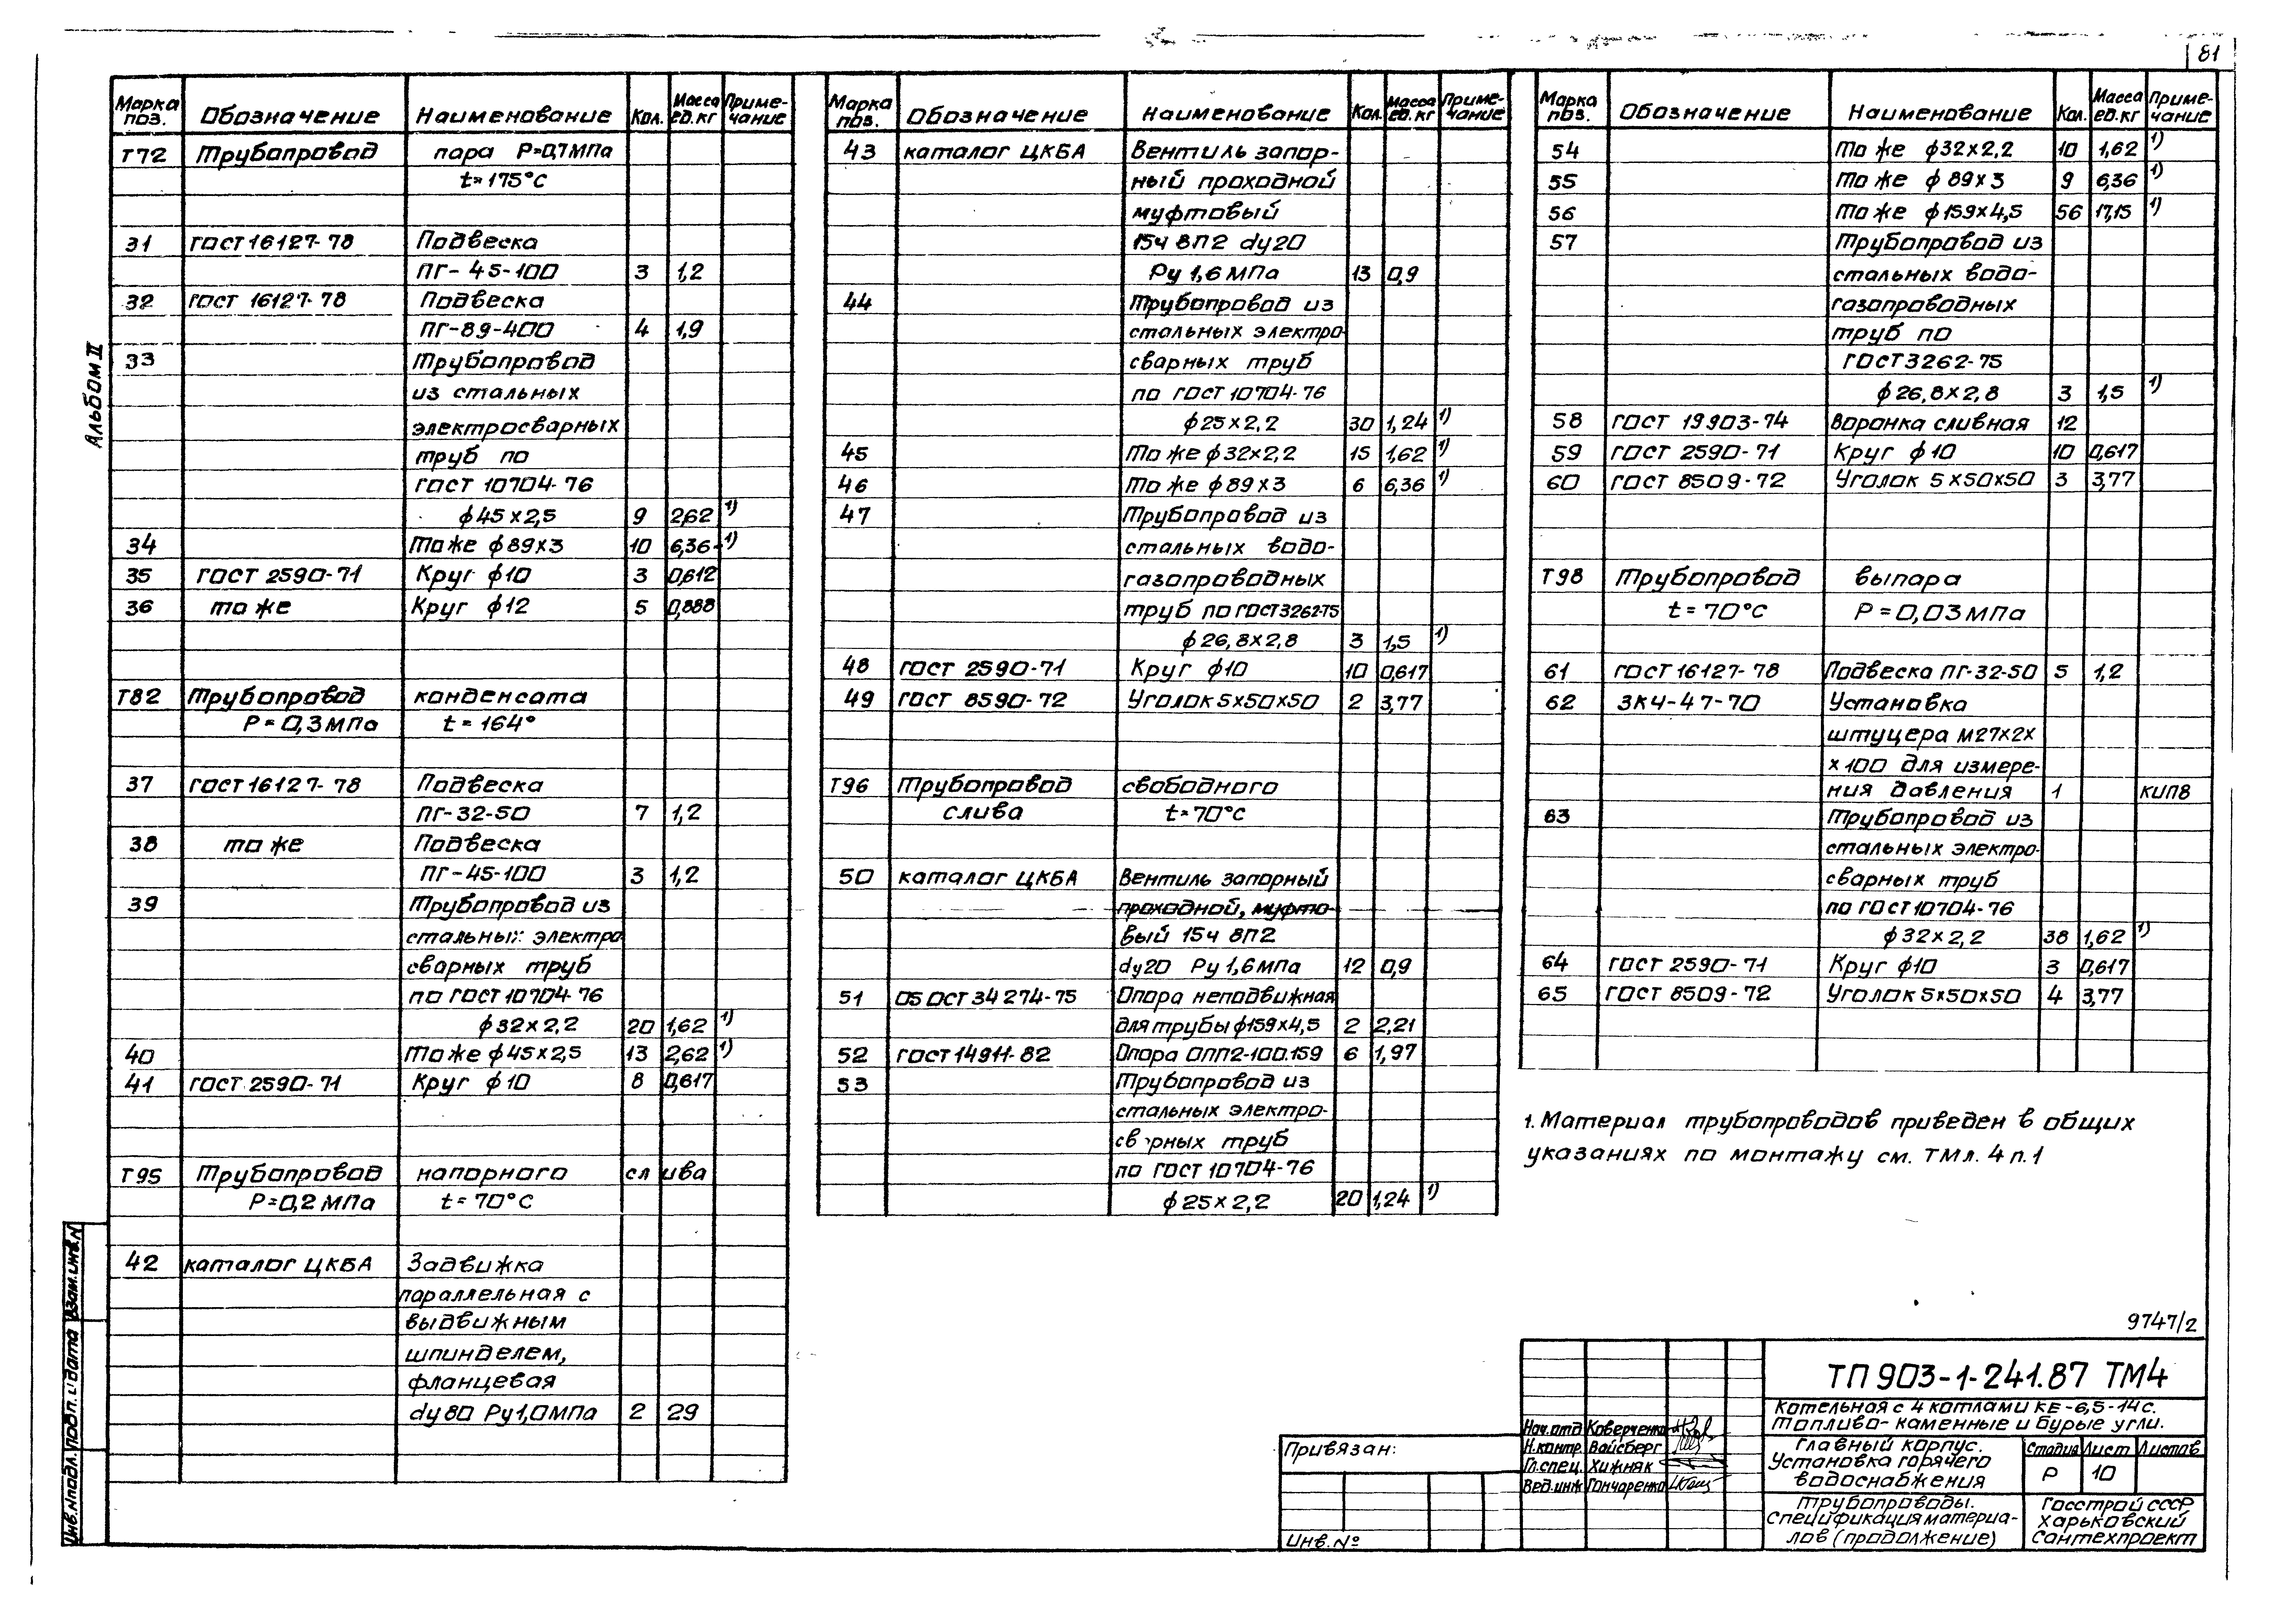 81
Альбом II
Марка поз. Обозначение Наименование Кол. Масса ед.кг Примечание
Т72 Трубопровод пара Р=0,7МПа
t=175°С
31 ГОСТ 16127-78 Подвеска
ПГ-45-100 3 1,2
32 ГОСТ 16127-78 Подвеска
ПГ-89-400 4 1,9
33 Трубопровод
из стальных
электросварных
труб по
ГОСТ 10704-76
ф45х2,5 9 2,62 1)
34 То же ф89х3 10 6,36 1)
35 ГОСТ 2590-71 Круг ф10 3 0,612
36 то же Круг ф12 5 0,888
Т82 Трубопровод конденсата
Р=0,3МПа t=164°
37 ГОСТ 16127-78 Подвеска
ПГ-32-50 7 1,2
38 то же Подвеска
ПГ-45-100 3 1,2
39 Трубопровод из
стальных электро
сварных труб
по ГОСТ 10704-76
ф32х2,2 20 1,62 1)
40 То же ф45х2,5 13 2,62 1)
41 ГОСТ 2590-71 Круг ф10 8 0,617
Т95 Трубопровод напорного слива
Р=0,2 МПа t=70°С
42 каталог ЦКБА Задвижка
параллельная с
выдвижным
шпинделем,
фланцевая
dу80 Ру1,0МПа 2 29
Марка поз. Обозначение Наименование Кол. Масса ед.кг Примечание
43 каталог ЦКБА Вентиль запор-
ный проходной
муфтовый
15ч 8П2 dу20
Ру 1,6 МПа 13 0,9
44 Трубопровод из
стальных электро
сварных труб
по ГОСТ 10704-76
ф25х2,2 30 1,24 1)
45 То же ф32х2,2 15 1,62 1)
46 То же ф89х3 6 6,36 1)
47 Трубопровод из
стальных водо-
газопроводных
труб по ГОСТ 3262-75
ф26,8х2,8 3 1,5 1)
48 ГОСТ 2590-71 Круг ф10 10 0,617
49 ГОСТ 8590-72 Уголок 5х50х50 2 3,77
Т96 Трубопровод свободного
слива t=70°С
50 каталог ЦКБА Вентиль запорный
проходной, муфто-
вый 15ч 8П2
dу20 Ру 1,6МПа 12 0,9
51 05 ОСТ 34 274-75 Опора неподвижная
для трубы ф159х4,5 2 2,21
52 ГОСТ 14911-82 Опора ОПП2-100.159 6 1,97
53 Трубопровод из
стальных электро-
св рных труб
по ГОСТ 10704-76
ф25х2,2 20 1,24 1)
Марка поз. Обозначение Наименование Кол. Масса ед.кг Примечание
54 То же ф32х2,2 10 1,62 1)
55 То же ф89х3 9 6,36 1)
56 То же ф159х4,5 56 17,15 1)
57 Трубопровод из
стальных водо-
газопроводных
труб по
ГОСТ 3262-75
ф26,8х2,8 3 1,5 1)
58 ГОСТ 19903-74 Воронка сливная 12
59 ГОСТ 2590-71 Круг ф10 10 0,617
60 ГОСТ 8509-72 Уголок 5х50х50 3 3,77
Т98 Трубопровод выпара
t=70°С Р=0,03МПа
61 ГОСТ 16127-78 Подвеска ПГ-32-50 5 1,2
62 ЗК4-47-70 Установка
штуцера М27х2х
х100 для измере-
ния давления 1 КИП8
63 Трубопровод из
стальных электро-
сварных труб
по ГОСТ 10704-76
ф32х2,2 38 1,62 1)
64 ГОСТ 2590-71 Круг ф10 3 0,617
65 ГОСТ 8509-72 Уголок 5х50х50 4 3,77
1. Материал трубопроводов приведен в общих
указаниях по монтажу см. ТМл. 4 п.1
9747/2
ТП 903-1-241.87 ТМ4
Котельная с 4 котлами КЕ-6,5-14с.
Топливо-каменные и бурые угли.
Нач.отд Коверченко
Н.контр. Вайсберг
Гл.спец. Хижняк
Вед.инж Гончаренко
Главный корпус.
Установка горячего
водоснабжения
Стадия Лист Листов
Р 10
Трубопроводы.
Спецификация материа-
лов (продолжение)
Госстрой СССР
Харьковский
Сантехпроект
Привязан:
Инв.№
Инв.№подл. Подп. и дата Взам.инв.№